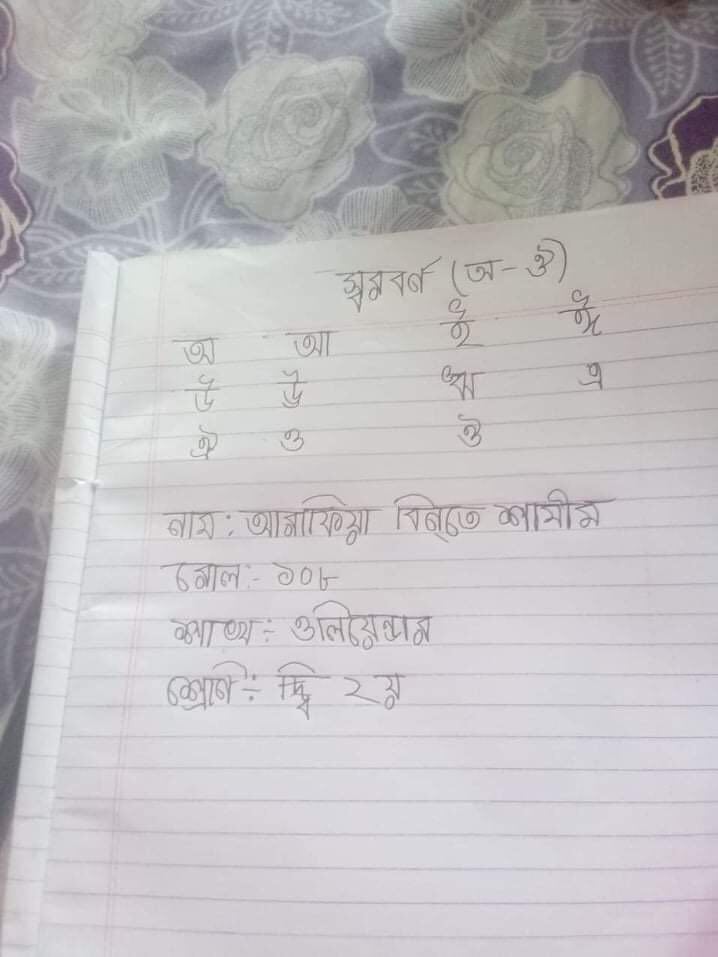 স্বরবর্ণ (অ-ঔ)
অ আ ই ঈ
উ ঊ ঋ এ
ঐ ও ঔ
নাম: আরাফিয়া বিনতে শামীম
রোল:- ১০৮
শাখা: ওলিয়েন্ডার
শ্রেণি: দ্বি ২য়